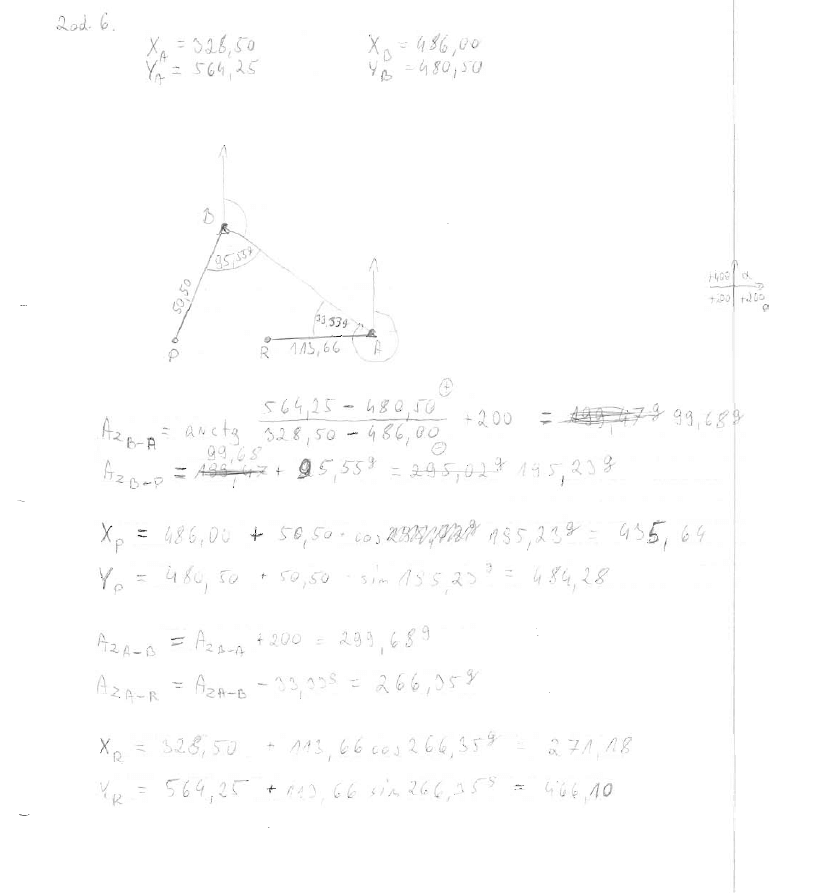 Zad. 6.
X_A = 328,50 X_B = 486,00
Y_A = 564,25 Y_B = 480,50
B
95,55g
50,50
P
33,33g
R
113,66
A
+400 α
+200 +200
Az_B-A = arctg (564,25 - 480,50)⊕ / (328,50 - 486,00)⊖ + 200 = 199,47g 99,68g
99,68
Az_B-P = 199,47 + 95,55g = 295,02g 195,23g
X_P = 486,00 + 50,50 · cos 195,23g = 435,64
Y_P = 480,50 + 50,50 · sin 195,23g = 484,28
Az_A-B = Az_B-A + 200 = 299,68g
Az_A-R = Az_A-B - 33,33g = 266,35g
X_R = 328,50 + 113,66 cos 266,35g = 271,18
Y_R = 564,25 + 113,66 sin 266,35g = 466,10